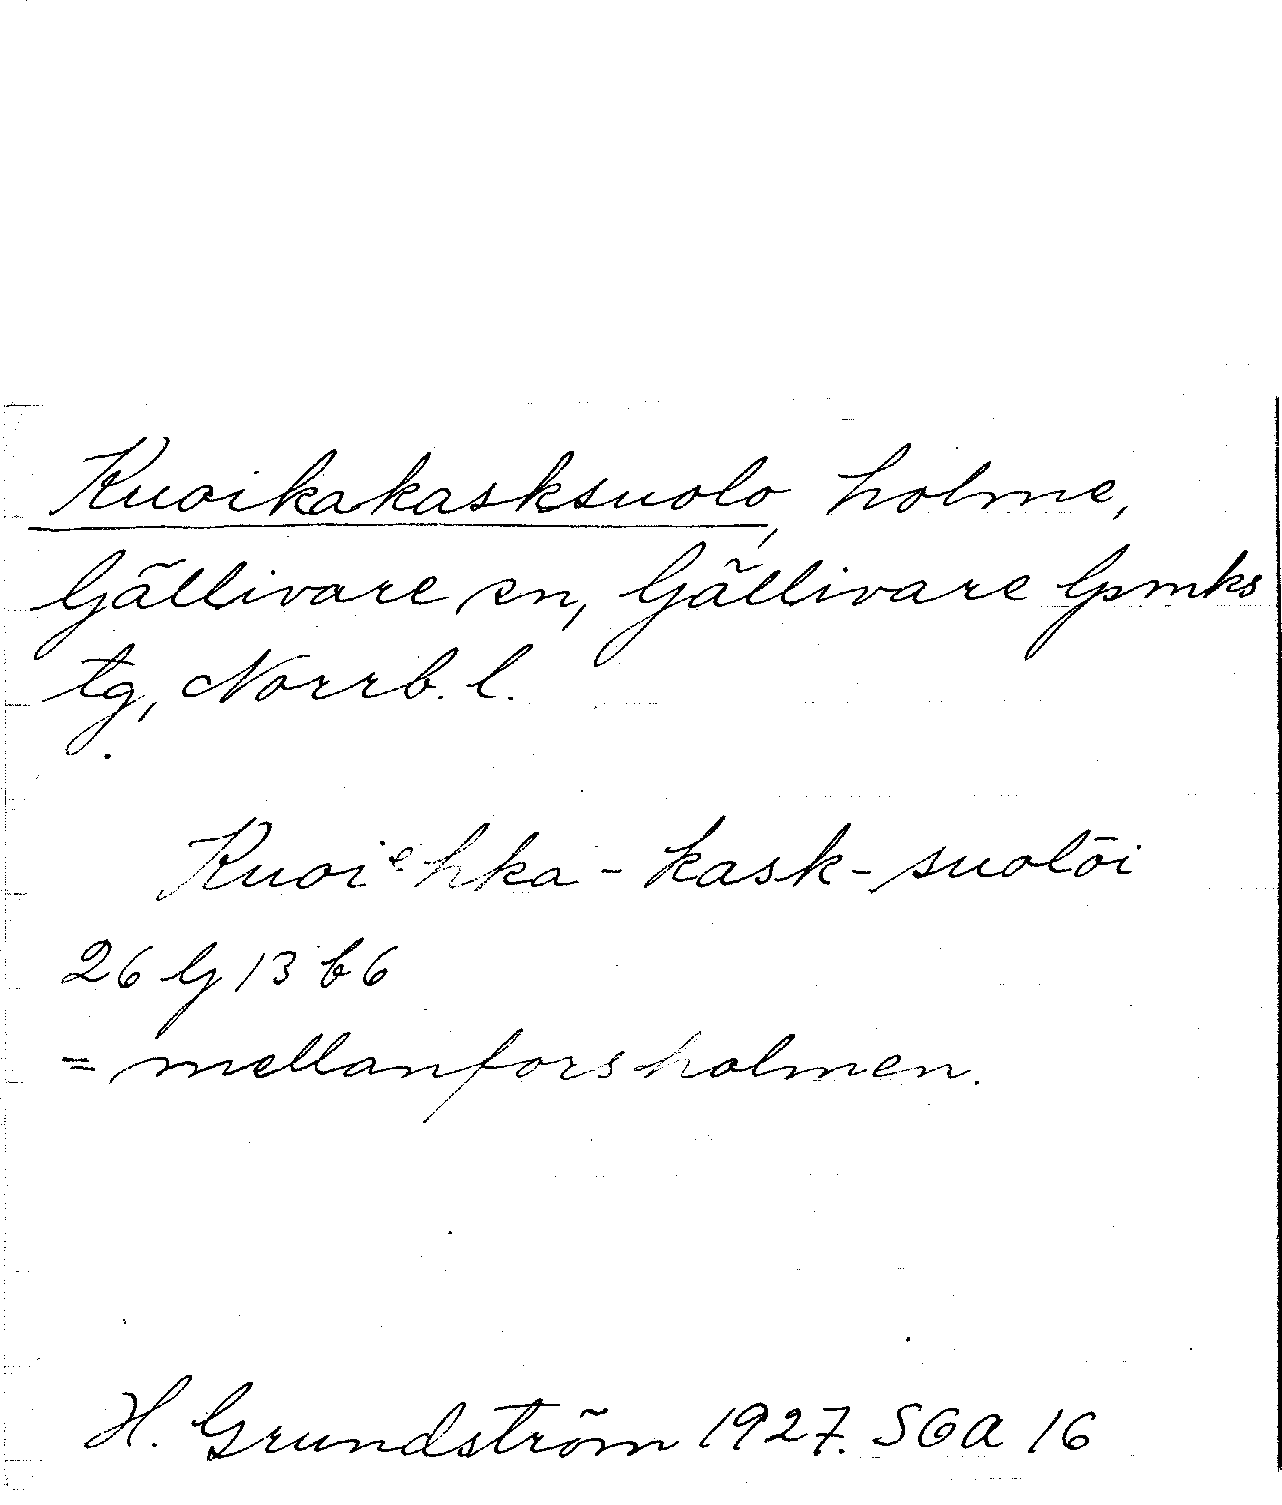 Kuoikakasksuolo, holme,
Gällivare sn, Gällivare lpmks
tg, Norrb. l.
Kuoiᵉhka-kask-suolōi
26 G 13 b6
= mellanforsholmen.
H. Grundström 1927. SGA 16